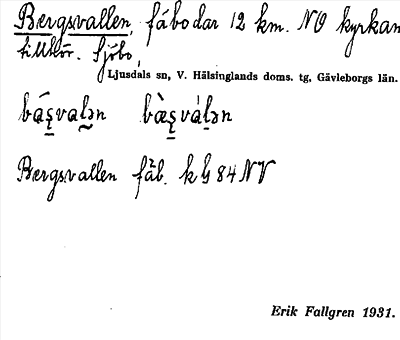 Bergsvallen, fäbodar 12 km. NO kyrkan
tillhör. Sjöbo,
Ljusdals sn, V. Hälsinglands doms. tg, Gävleborgs län.
Bergsvallen fäb. k G 84 NV
Erik Fallgren 1931.